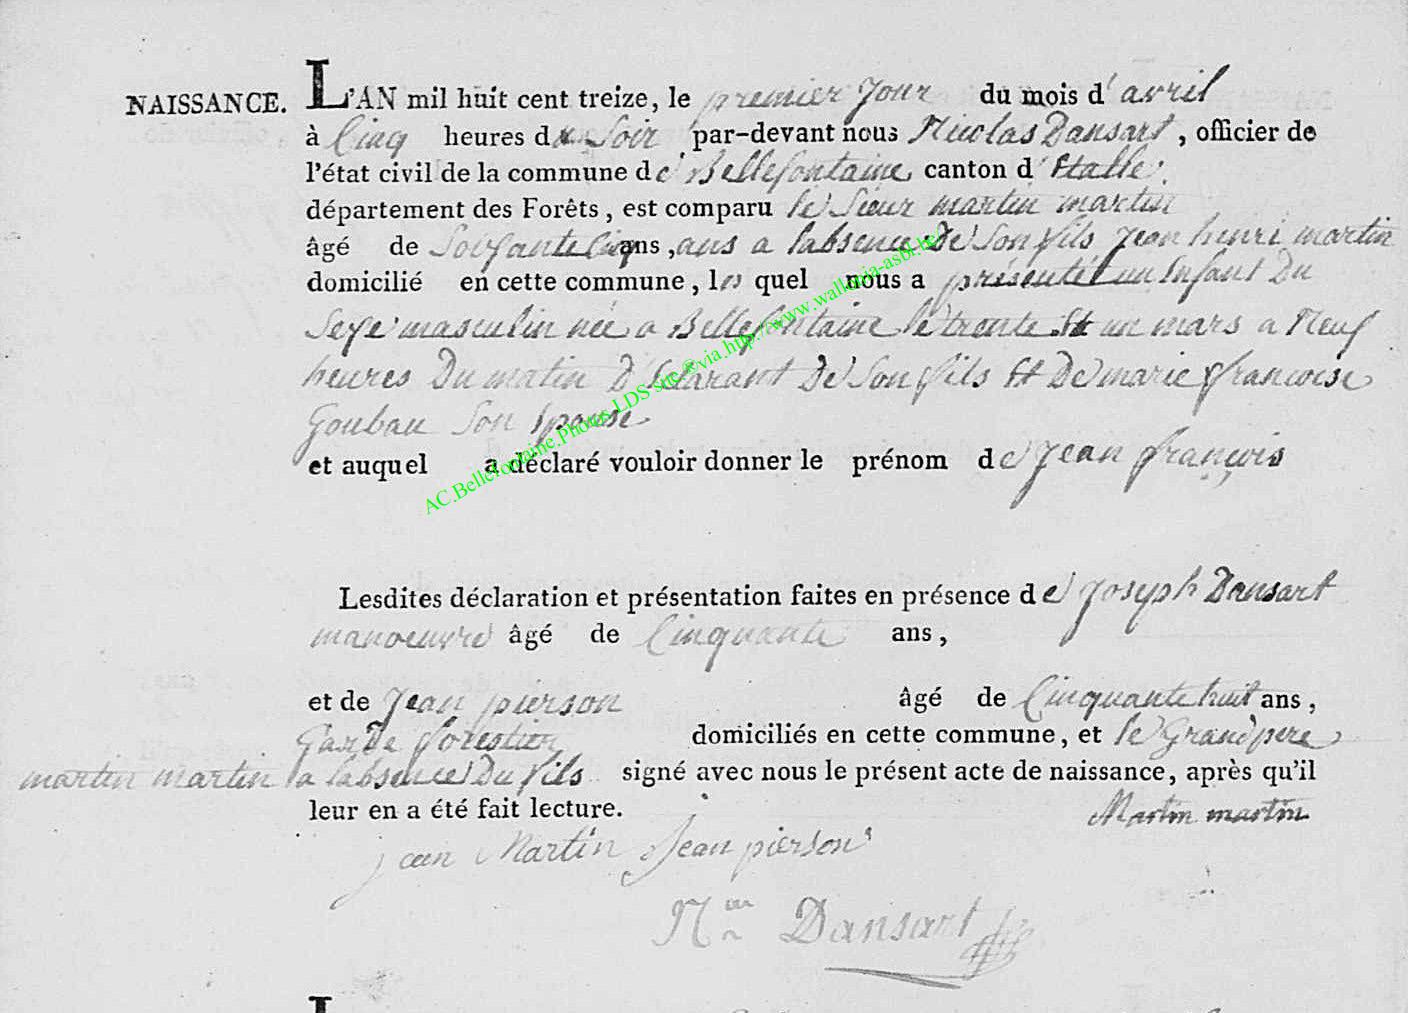 NAISSANCE. L'AN mil huit cent treize, le premier Jour du mois d' avril
à Cinq heures du Soir par-devant nous Nicolas Dansart, officier de
l'état civil de la commune de Bellefontaine, canton d' Etalle.
département des Forêts, est comparu le Sieur martin martin
âgé de Soixante Cinq ans, ans a l'absence De Son fils Jean henri martin
domicilié en cette commune, les quel nous a présenté un Enfant Du
Sexe masculin née a Bellefontaine le trente Et un mars a Neuf
heures Du matin D'Eclarant De Son fils Et De marie francoise
Goubau Son Epouse
et auquel a déclaré vouloir donner le prénom de Jean françois
AC.Bellefontaine.Photos LDS site ®via.http://www.wallonia-asbl.be/
Lesdites déclaration et présentation faites en présence de Joseph Dansart
manoeuvre âgé de Cinquante ans,
et de Jean pierson âgé de Cinquante huit ans,
Garde forestier domiciliés en cette commune, et le Grand pere
martin martin a l'absence Du fils signé avec nous le présent acte de naissance, après qu'il
leur en a été fait lecture. Martin martin
jean Martin Jean pierson
Dansart